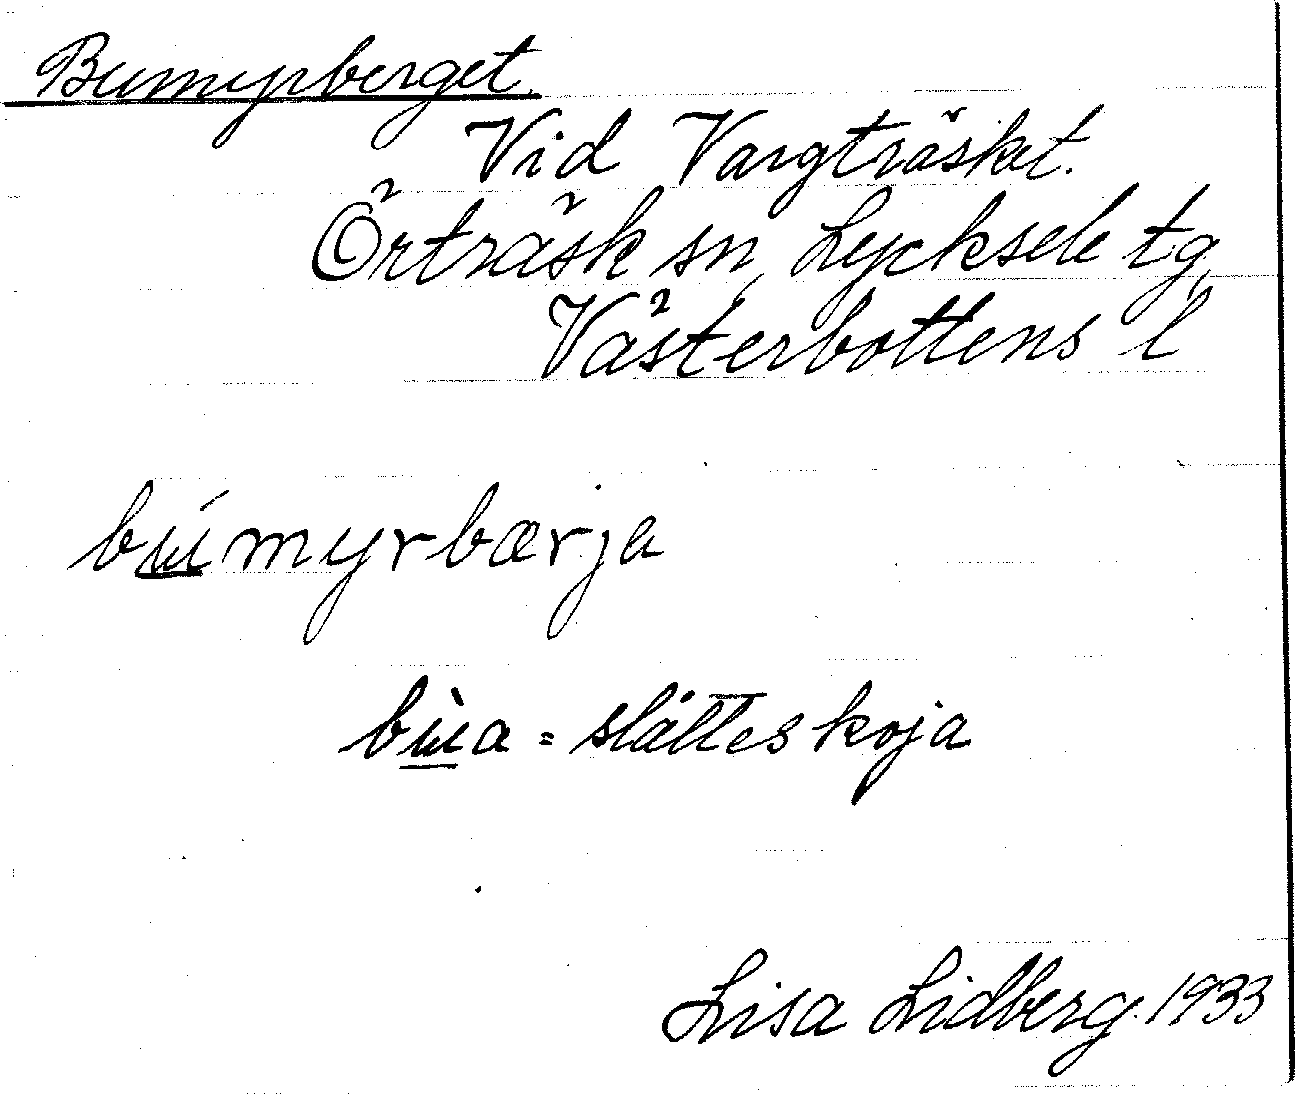 Bumyrberget.
Vid Vargträsket.
Örträsk sn, Lycksele tg
Västerbottens l
bú̲myrbærja
bù̲a = slåtteskoja
Lisa Lidberg. 1933